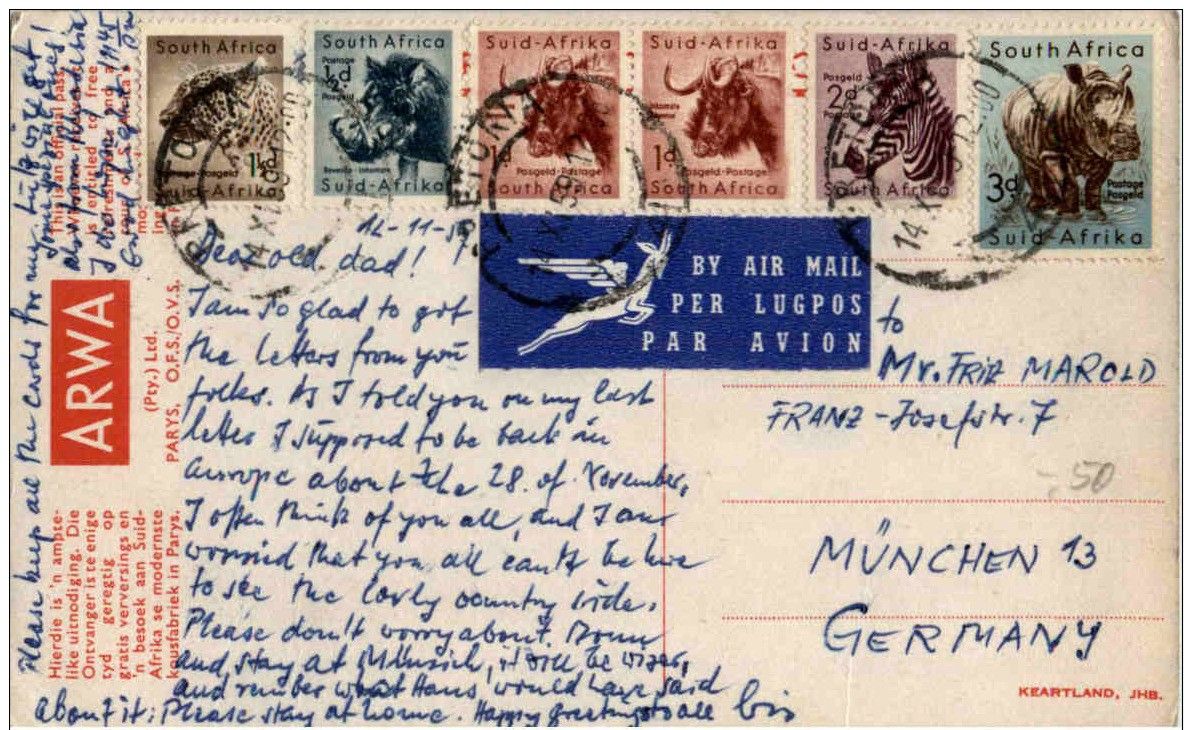 South Africa
1½d
Postage-Posgeld
Suid-Afrika
South Africa
Postage
½d
Posgeld
Suid-Afrika
Suid-Afrika
1d
Posgeld-Postage
South Africa
Suid-Afrika
1d
Posgeld-Postage
South Africa
Suid-Afrika
Posgeld
2d
Postage
South Africa
South Africa
3d
Postage
Posgeld
Suid-Afrika
PRETORIA
14 XI
12-11-5
Dear old dad!
I am so glad to get
the letters from you
folks. As I told you on my last
letter I supposed to be back in
Europe about the 28. of November,
I often think of you all, and I am
worried that you all can't be here
to see the lovly country side.
Please don't worry about. Mom
and stay at Munich, it will be wiser,
and rember what Hans, would have said
about it: Please stay at home. Happy greetings to all
BY AIR MAIL
PER LUGPOS
PAR AVION
to
Mr. FRIZ MAROLD
FRANZ-Josefstr. 7
-.50
MÜNCHEN 13
GERMANY
KEARTLAND, JHB.
Please keep all the cards for me,
This is an official pass.
is entitled to free
ARWA
(Pty.) Ltd.
PARYS, O.F.S./O.V.S.
Hierdie is 'n ampte-
like uitnodiging. Die
Ontvanger is te enige
tyd geregtig op
gratis verversings en
'n besoek aan Suid-
Afrika se modernste
kousfabriek in Parys.